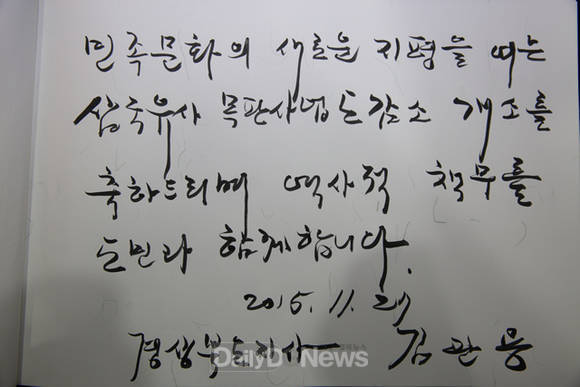 민족문화의 새로운 지평을 여는
삼국유사 목판사업도감소 개소를
축하드리며 역사적 책무를
도민과 함께 합니다.
2015. 11.
경상북도지사 김관용
DailyDNews